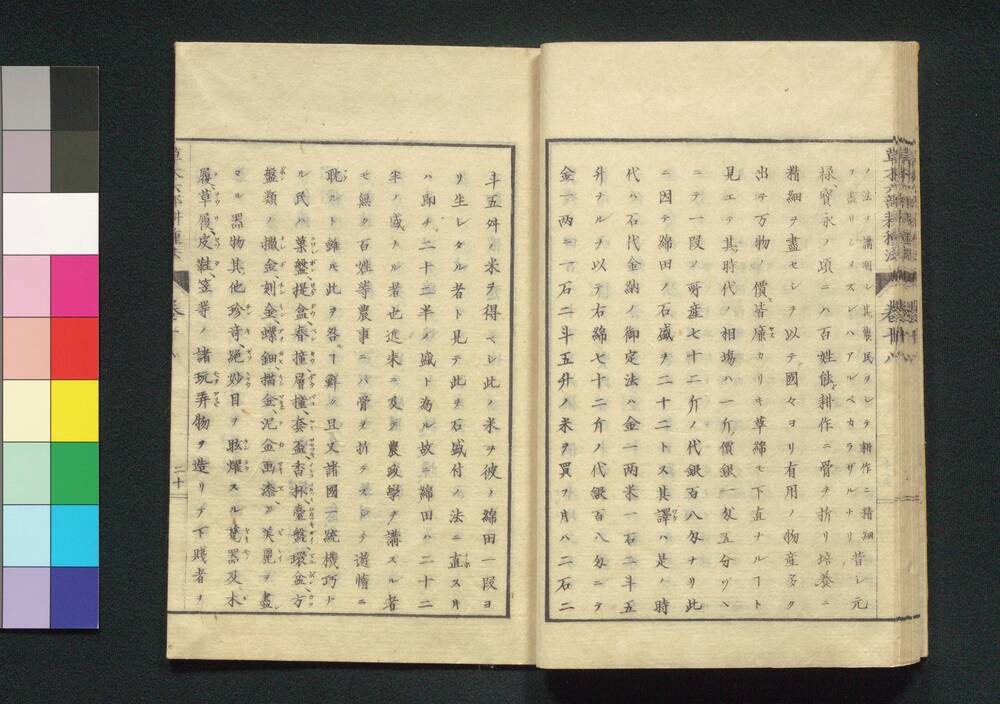 ノ法ノ講明シ其農民ヲシテ耕作ニ精細
ヲ盡サシメズンバアルベカラザルナリ昔シ元
禄、寶永ノ頃ニハ百姓能耕作ニ骨ヲ折リ培養ニ
精細ヲ盡セシヲ以テ國々ヨリ有用ノ物産多ク
出テ万物ノ價皆廉カリキ草綿モ下直ナルヿト
見エテ其時代ノ相場ハ一斤ノ價銀一匁五分ヅヽ
ニテ一段ノ所産七十二斤ノ代銀百八匁ナリ此
ニ因テ綿田ノ石盛ヲ二十二トス其譯ハ是ノ時
代ハ石代金納ノ御定法ハ金一両米一石二斗五
升ナルヲ以テ右綿七十二斤ノ代銀百八匁ニテ
金一両ニ一石二斗五升ノ米ヲ買フ片ハ二石二
斗五舛ノ米ヲ得ベシ此ノ米ヲ彼ノ綿田一段ヨ
リ生レタル者ト見テ此ヲ石盛付ノ法ニ直ス片
ハ即チ二十二半ノ盛ト為ル故ニ綿田ハ二十二
半ノ盛ナル者也近来ニ及テ農政學ヲ講スル者
モ無ク百姓等農事ニハ骨ヲ折テズシテ遊惰ニ
耽ルト雖モ此ヲ咎ルヿ鮮ク且又諸國一統機巧ナ
ル民ハ菓盤、提盒、春撞、層撞、套盃、杏杯、臺盤、環盆、方
盤類ノ撒金、刻金、螺鈿、描金、泥金画漆、ノ美麗ヲ盡
セル器物其他珍竒、絕妙目ヲ眩耀スル甆器及木
履、草履、皮鞋、笠等ノ諸玩弄物ヲ造リテ下賤者ヲ
二十